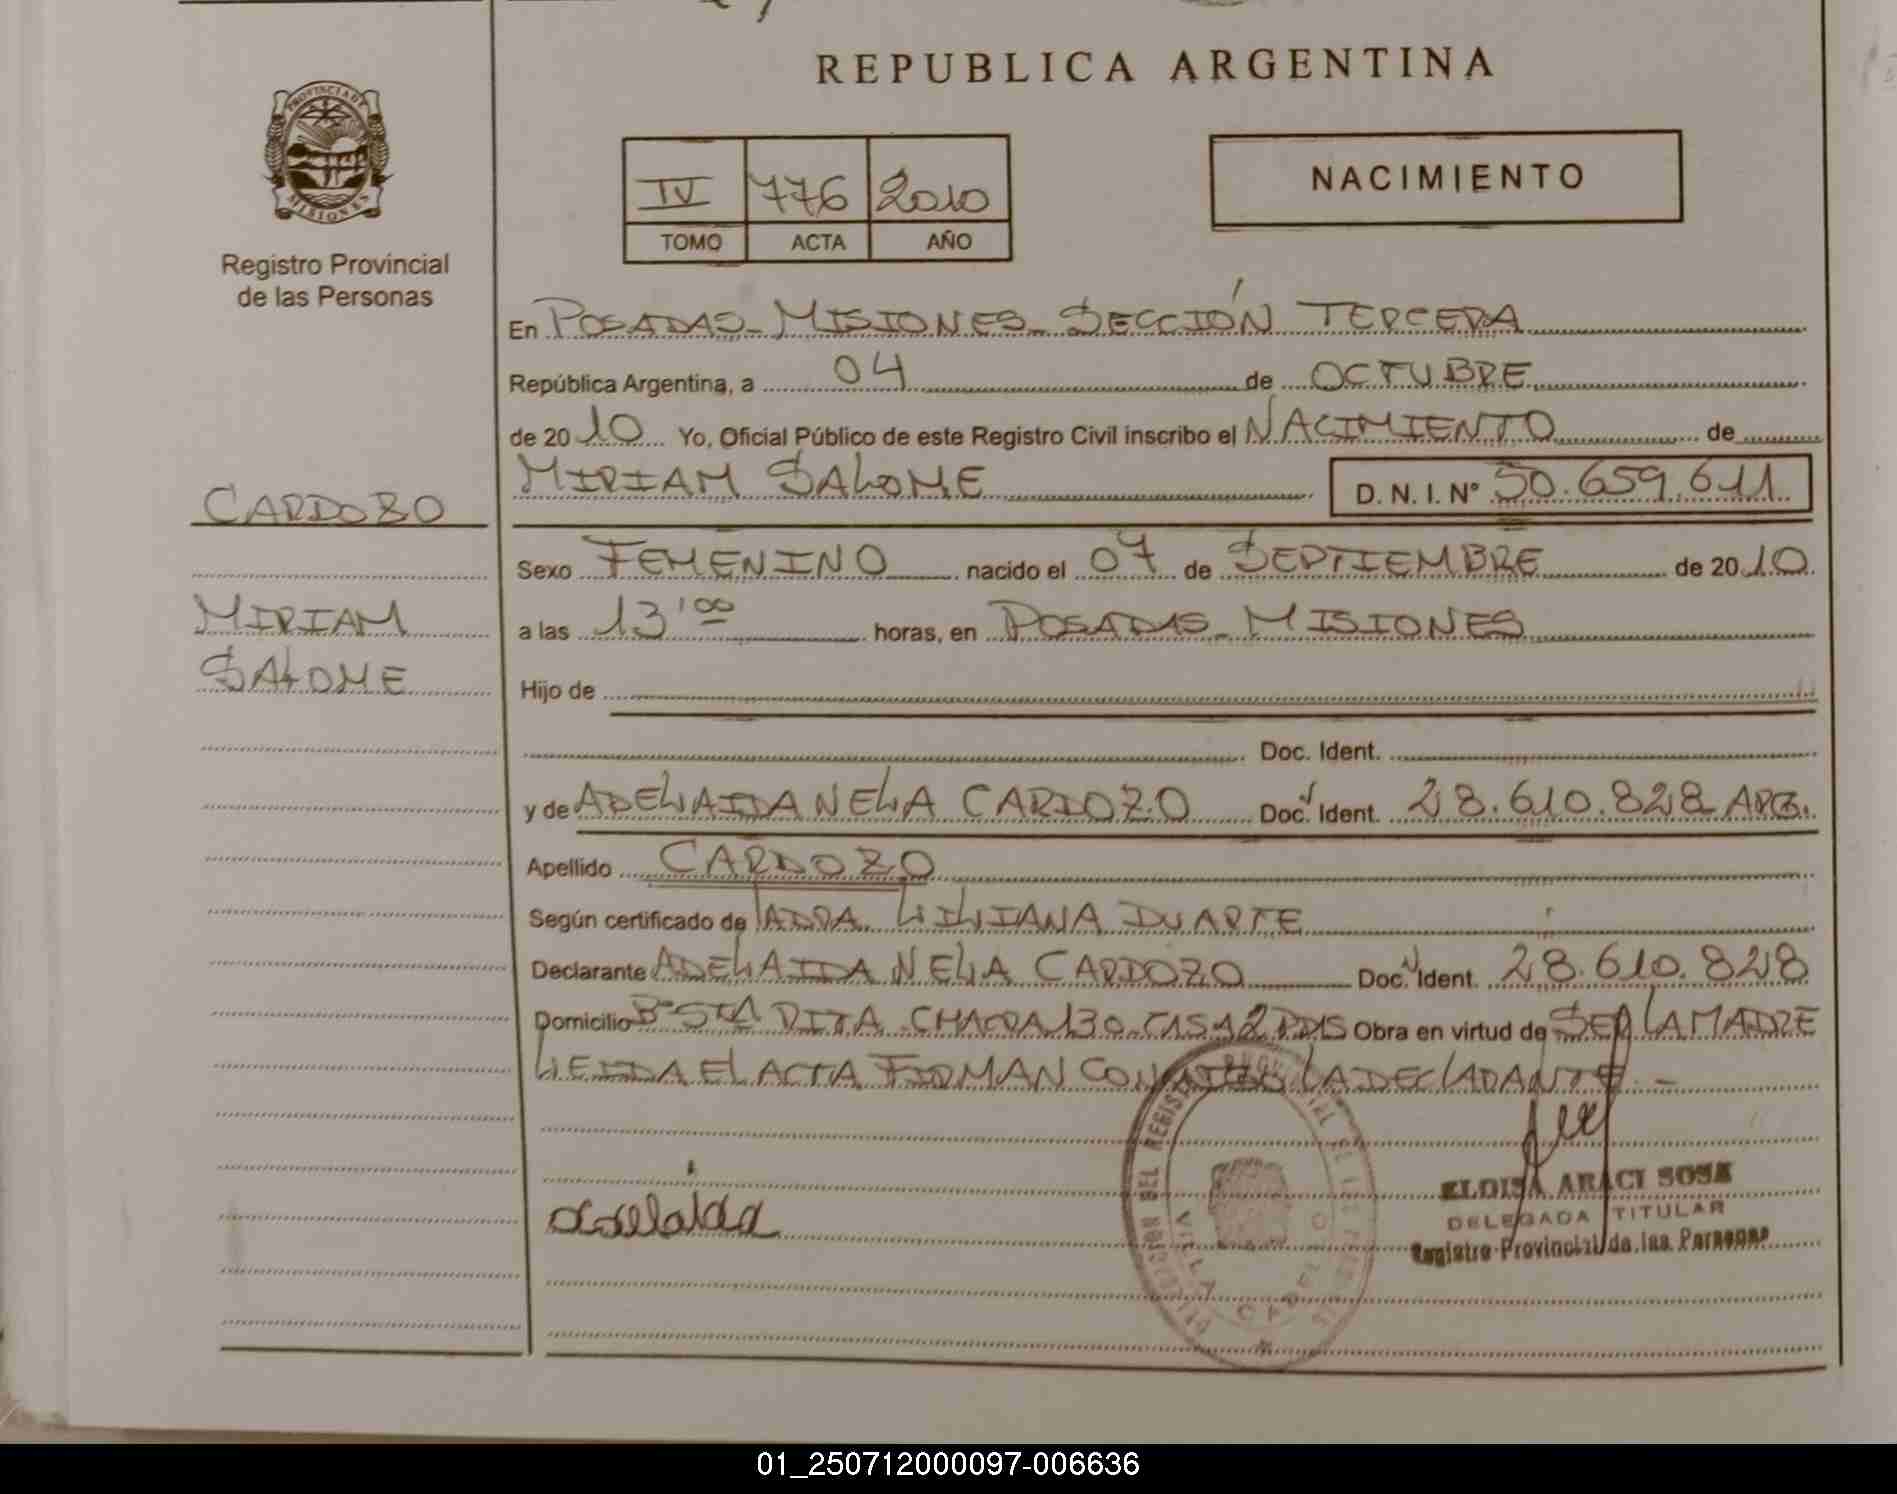 REPUBLICA ARGENTINA
PROVINCIA DE
MISIONES
Registro Provincial
de las Personas
IV 776 2010
TOMO ACTA AÑO
NACIMIENTO
En POSADAS - MISIONES - SECCIÓN TERCERA
República Argentina, a 04 de OCTUBRE
de 2010 Yo, Oficial Público de este Registro Civil inscribo el NACIMIENTO de
MIRIAM SALOME D. N. I. Nº 50.659.611
CARDOZO
Sexo FEMENINO nacido el 07 de SEPTIEMBRE de 2010
MIRIAM
a las 13'00 horas, en POSADAS - MISIONES
SALOME
Hijo de
Doc. Ident.
y de ADELAIDA NELIA CARDOZO Doc. Ident. 28.610.828 ARG.
Apellido CARDOZO
Según certificado de LIILIANA DUARTE
Declarante ADELAIDA NELIA CARDOZO Doc. Ident. 28.610.828
Domicilio Bº STA RITA CHACRA 130 CASA 2 PDAS Obra en virtud de SER LA MADRE
LEIDA EL ACTA FIRMAN CONMIGO LA DECLARANTE. -
Adelaida
ELOISA ARACI SOSA
DELEGADA TITULAR
Registro Provincial de las Personas
01_250712000097-006636